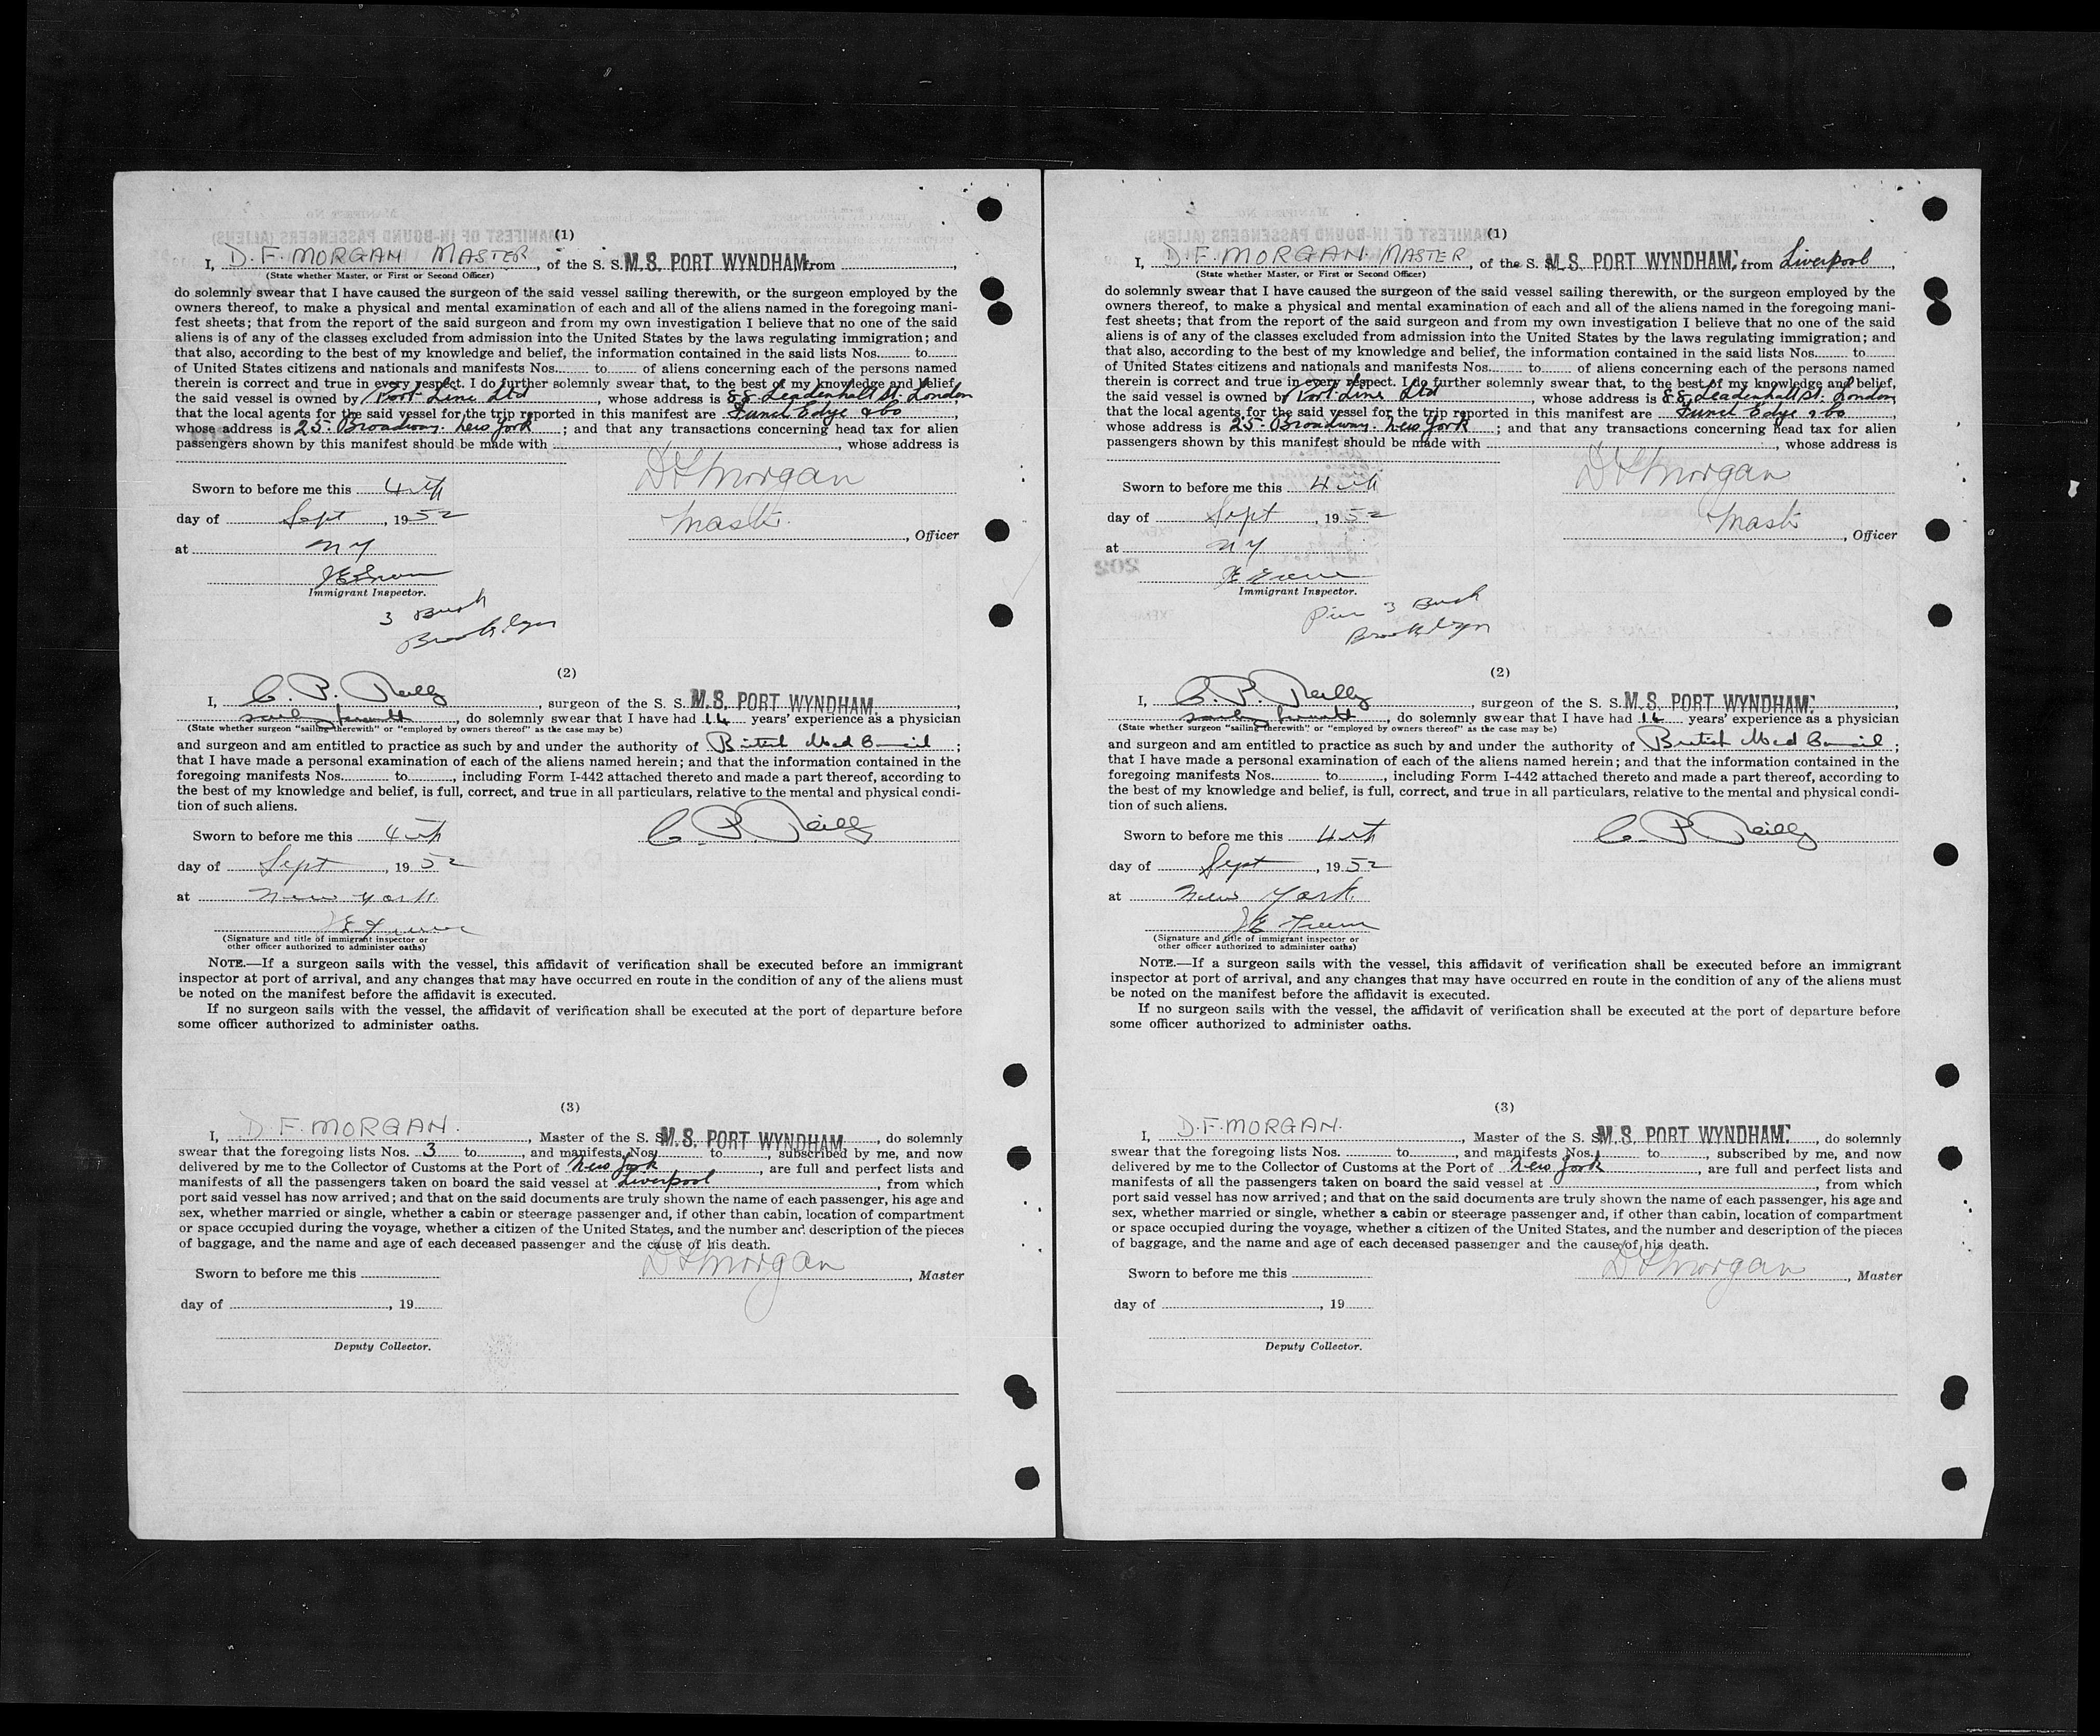 (1)
I, D. F. MORGAN MASTER, of the S. S. M.S. PORT WYNDHAM, from
(State whether Master, or First or Second Officer)
do solemnly swear that I have caused the surgeon of the said vessel sailing therewith, or the surgeon employed by the
owners thereof, to make a physical and mental examination of each and all of the aliens named in the foregoing mani-
fest sheets; that from the report of the said surgeon and from my own investigation I believe that no one of the said
aliens is of any of the classes excluded from admission into the United States by the laws regulating immigration; and
that also, according to the best of my knowledge and belief, the information contained in the said lists Nos. to
of United States citizens and nationals and manifests Nos. to of aliens concerning each of the persons named
therein is correct and true in every respect. I do further solemnly swear that, to the best of my knowledge and belief,
the said vessel is owned by Port Line Ltd, whose address is 88 Leadenhall St. London
that the local agents for the said vessel for the trip reported in this manifest are Funch Edye & Co,
whose address is 25 Broadway. New York; and that any transactions concerning head tax for alien
passengers shown by this manifest should be made with , whose address is
Sworn to before me this 4th
D F Morgan
day of Sept, 1952
Master, Officer
at NY
Immigrant Inspector.
3 Bush
Brooklyn
(2)
I, C. P. Reilly, surgeon of the S. S. M.S. PORT WYNDHAM,
sailing therewith, do solemnly swear that I have had 14 years' experience as a physician
(State whether surgeon "sailing therewith" or "employed by owners thereof" as the case may be)
and surgeon and am entitled to practice as such by and under the authority of British Med Council;
that I have made a personal examination of each of the aliens named herein; and that the information contained in the
foregoing manifests Nos. to , including Form I-442 attached thereto and made a part thereof, according to
the best of my knowledge and belief, is full, correct, and true in all particulars, relative to the mental and physical condi-
tion of such aliens.
Sworn to before me this 4th
C. P. Reilly
day of Sept, 1952
at New York
(Signature and title of immigrant inspector or
other officer authorized to administer oaths)
NOTE.—If a surgeon sails with the vessel, this affidavit of verification shall be executed before an immigrant
inspector at port of arrival, and any changes that may have occurred en route in the condition of any of the aliens must
be noted on the manifest before the affidavit is executed.
If no surgeon sails with the vessel, the affidavit of verification shall be executed at the port of departure before
some officer authorized to administer oaths.
(3)
I, D. F. MORGAN., Master of the S. S. M.S. PORT WYNDHAM, do solemnly
swear that the foregoing lists Nos. 3 to , and manifests Nos. to , subscribed by me, and now
delivered by me to the Collector of Customs at the Port of New York, are full and perfect lists and
manifests of all the passengers taken on board the said vessel at Liverpool, from which
port said vessel has now arrived; and that on the said documents are truly shown the name of each passenger, his age and
sex, whether married or single, whether a cabin or steerage passenger and, if other than cabin, location of compartment
or space occupied during the voyage, whether a citizen of the United States, and the number and description of the pieces
of baggage, and the name and age of each deceased passenger and the cause of his death.
Sworn to before me this
D F Morgan, Master
day of , 19
Deputy Collector.
(1)
I, D. F. MORGAN. MASTER, of the S. S. M.S. PORT WYNDHAM, from Liverpool,
(State whether Master, or First or Second Officer)
do solemnly swear that I have caused the surgeon of the said vessel sailing therewith, or the surgeon employed by the
owners thereof, to make a physical and mental examination of each and all of the aliens named in the foregoing mani-
fest sheets; that from the report of the said surgeon and from my own investigation I believe that no one of the said
aliens is of any of the classes excluded from admission into the United States by the laws regulating immigration; and
that also, according to the best of my knowledge and belief, the information contained in the said lists Nos. to
of United States citizens and nationals and manifests Nos. to of aliens concerning each of the persons named
therein is correct and true in every respect. I do further solemnly swear that, to the best of my knowledge and belief,
the said vessel is owned by Port Line Ltd, whose address is 88 Leadenhall St. London
that the local agents for the said vessel for the trip reported in this manifest are Funch Edye & Co,
whose address is 25 Broadway. New York; and that any transactions concerning head tax for alien
passengers shown by this manifest should be made with , whose address is
Sworn to before me this 4th
D F Morgan
day of Sept, 1952
Master, Officer
at NY
Immigrant Inspector.
Pier 3 Bush
Brooklyn
(2)
I, C. P. Reilly, surgeon of the S. S. M.S. PORT WYNDHAM,
sailing therewith, do solemnly swear that I have had 14 years' experience as a physician
(State whether surgeon "sailing therewith" or "employed by owners thereof" as the case may be)
and surgeon and am entitled to practice as such by and under the authority of British Med Council;
that I have made a personal examination of each of the aliens named herein; and that the information contained in the
foregoing manifests Nos. to , including Form I-442 attached thereto and made a part thereof, according to
the best of my knowledge and belief, is full, correct, and true in all particulars, relative to the mental and physical condi-
tion of such aliens.
Sworn to before me this 4th
C. P. Reilly
day of Sept, 1952
at New York
(Signature and title of immigrant inspector or
other officer authorized to administer oaths)
NOTE.—If a surgeon sails with the vessel, this affidavit of verification shall be executed before an immigrant
inspector at port of arrival, and any changes that may have occurred en route in the condition of any of the aliens must
be noted on the manifest before the affidavit is executed.
If no surgeon sails with the vessel, the affidavit of verification shall be executed at the port of departure before
some officer authorized to administer oaths.
(3)
I, D. F. MORGAN., Master of the S. S. M.S. PORT WYNDHAM, do solemnly
swear that the foregoing lists Nos. to , and manifests Nos. to , subscribed by me, and now
delivered by me to the Collector of Customs at the Port of New York, are full and perfect lists and
manifests of all the passengers taken on board the said vessel at , from which
port said vessel has now arrived; and that on the said documents are truly shown the name of each passenger, his age and
sex, whether married or single, whether a cabin or steerage passenger and, if other than cabin, location of compartment
or space occupied during the voyage, whether a citizen of the United States, and the number and description of the pieces
of baggage, and the name and age of each deceased passenger and the cause of his death.
Sworn to before me this
D F Morgan, Master
day of , 19
Deputy Collector.